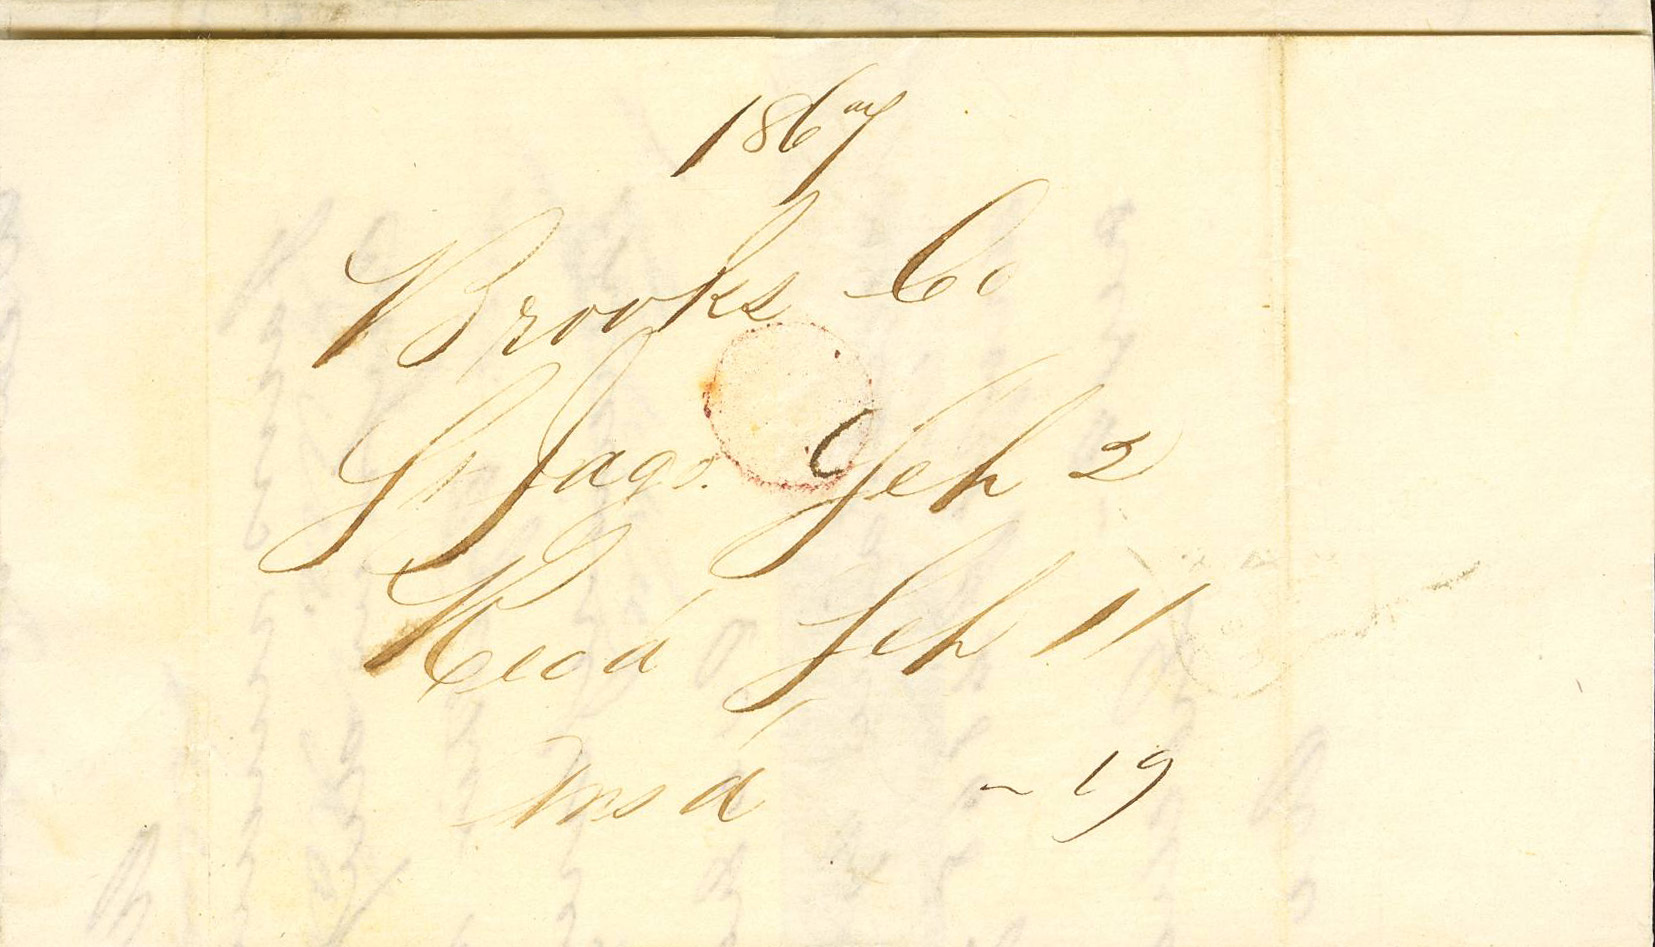 1867
Brooks Co
St Jago. Feb 2
Recd Feb 11
Ansd - 19